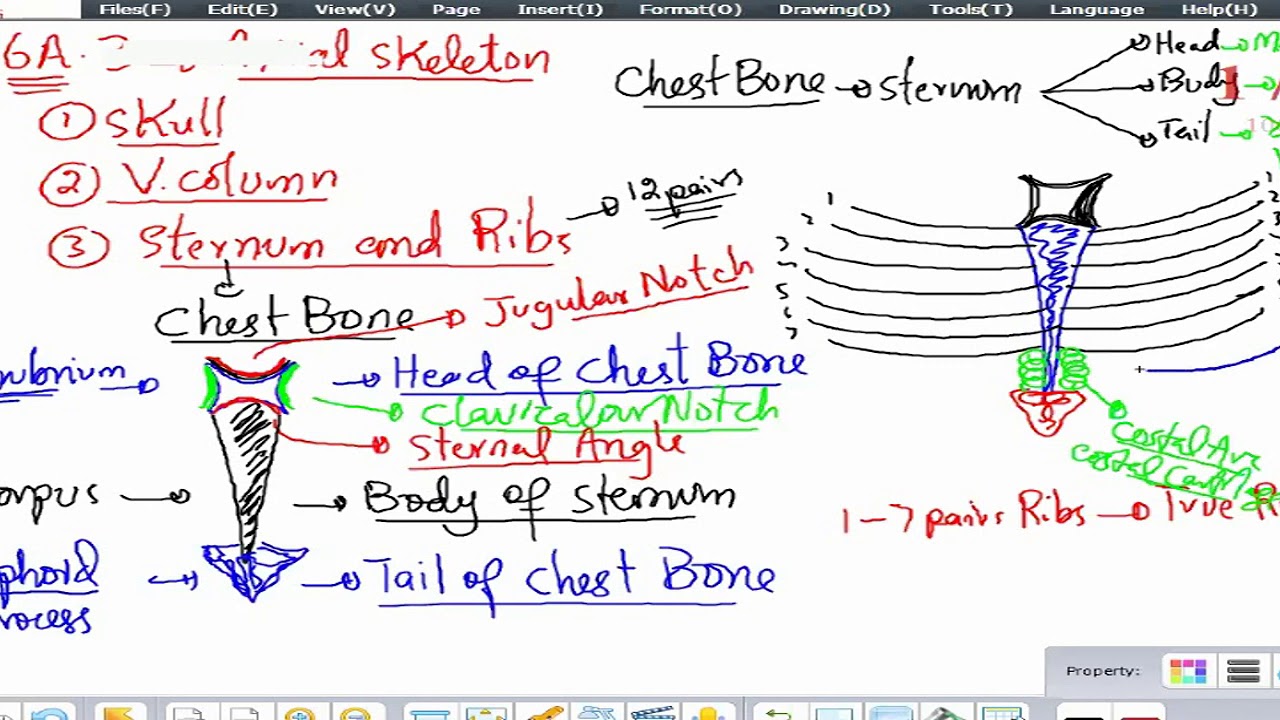 Files(F) Edit(E) View(V) Page Insert(I) Format(O) Drawing(D) Tools(T) Language Help(H)
6A. skeleton
① Skull
② V. column
③ Sternum and Ribs → 12 pairs
Chest Bone
Jugular Notch
Head of Chest Bone
Clavicular Notch
Sternal Angle
Body of Sternum
Tail of Chest Bone
Chest Bone → Sternum
Head
Body
Tail
1
2
3
4
5
6
7
1
2
3
Costal
Costal
1-7 pairs Ribs →
Property: